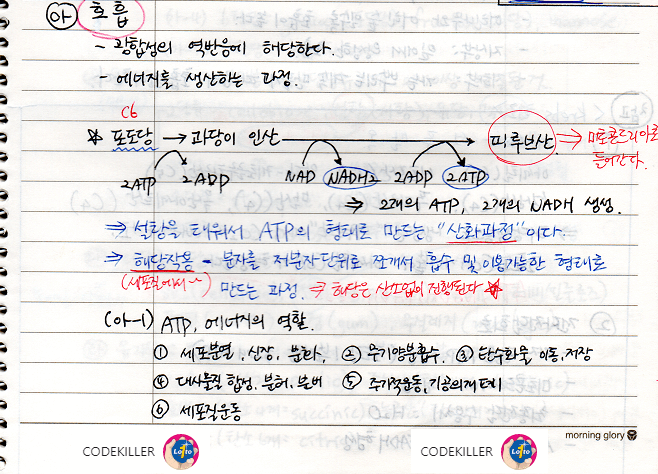 (아) 호흡
- 광합성의 역반응에 해당한다.
- 에너지를 생산하는 과정.
C6
☆ 포도당 → 과당이 인산 → 피루브산 ⇒ 미토콘드리아로 들어간다.
2ATP 2ADP NAD NADH2 2ADP 2ATP
⇒ 2개의 ATP, 2개의 NADH 생성.
⇒ 설탕을 태워서 ATP의 형태로 만드는 "산화과정"이다.
⇒ 해당작용 - 분자를 저분자단위로 쪼개서 흡수 및 이용가능한 형태로
(세포질에서~) 만드는 과정. ⇒ 해당은 산소없이 진행된다 ☆
(아-1) ATP, 에너지의 역할.
① 세포분열, 신장, 분화, ② 무기양분흡수. ③ 탄수화물 이동, 저장
④ 대사물질 합성. 분해. 분비 ⑤ 주기적운동, 기공의개폐
⑥ 세포질운동
morning glory
CODEKILLER Lotto CODEKILLER Lotto